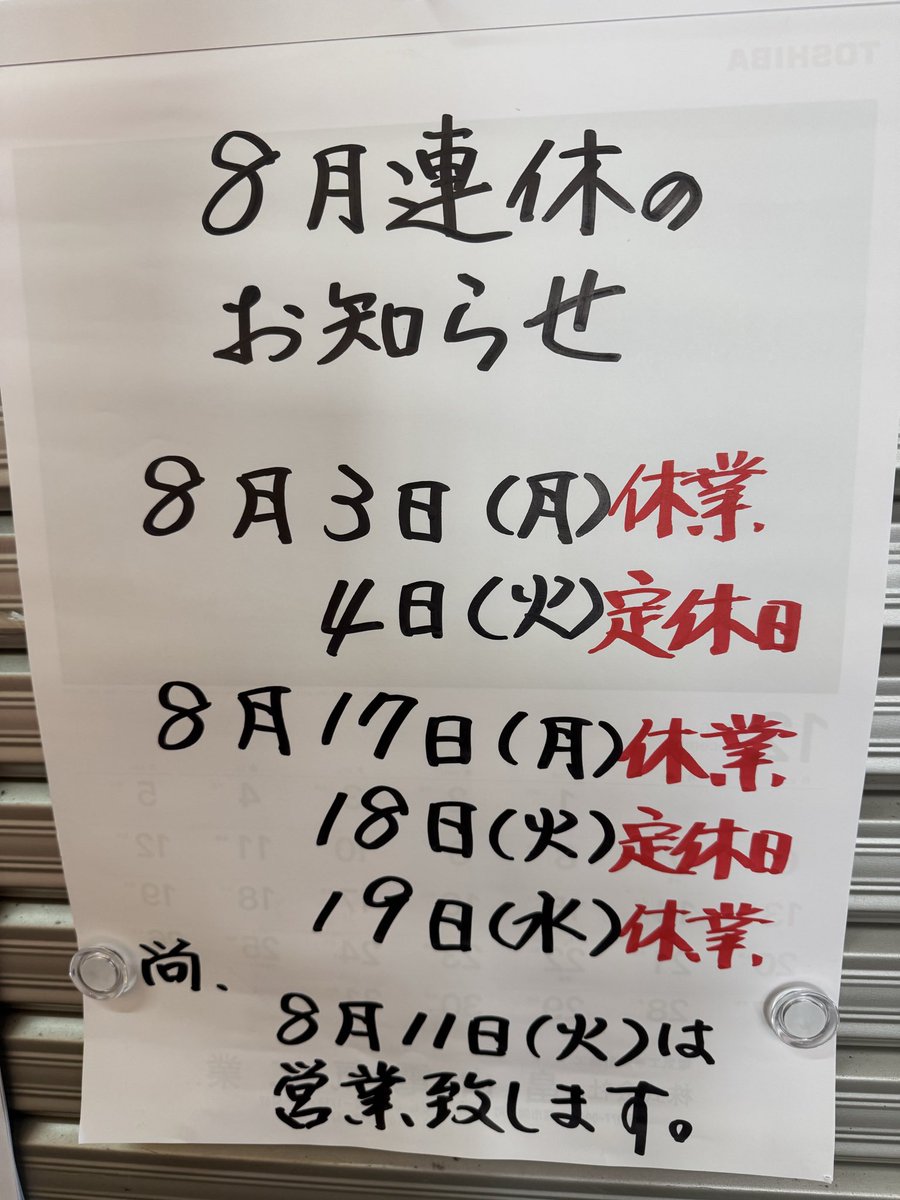 8月連休の
お知らせ
8月3日(月)休業
4日(火)定休日
8月17日(月)休業
18日(火)定休日
19日(水)休業
尚、
8月11日(火)は
営業致します。
TOSHIBA